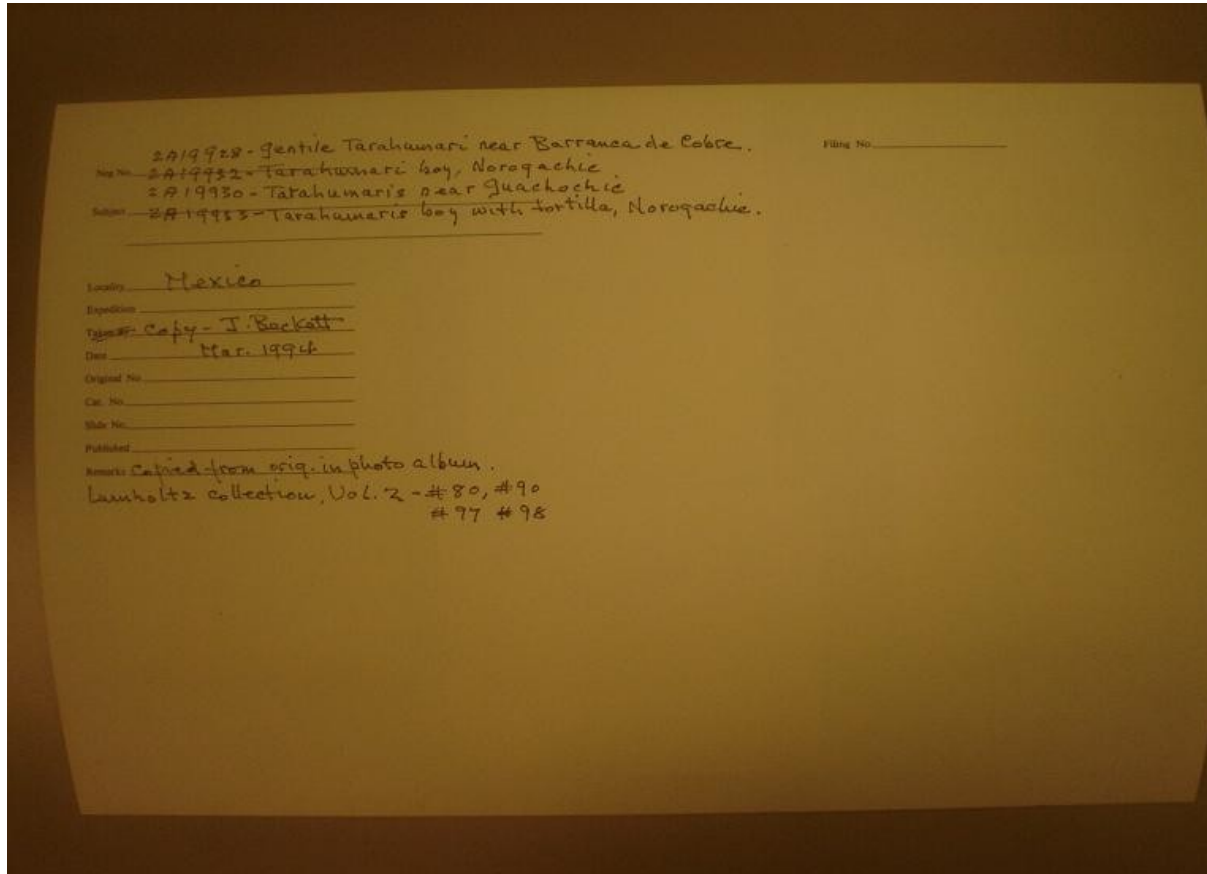 2A19928 - Gentile Tarahumari near Barranca de Cobre.
Filing No.
Neg No. 2A19932 - Tarahumari boy, Norogachie
2A19930 - Tarahumaris near Guachochie
Subject 2A19933 - Tarahumaris boy with tortilla, Norogachie.
Locality Mexico
Expedition
Taken Copy - J. Beckett
Date Mar. 1994
Original No.
Cat. No.
Slide No.
Published
Remarks Copied from orig. in photo album.
Lumholtz collection, Vol. 2 - #80, #90
#97 #98